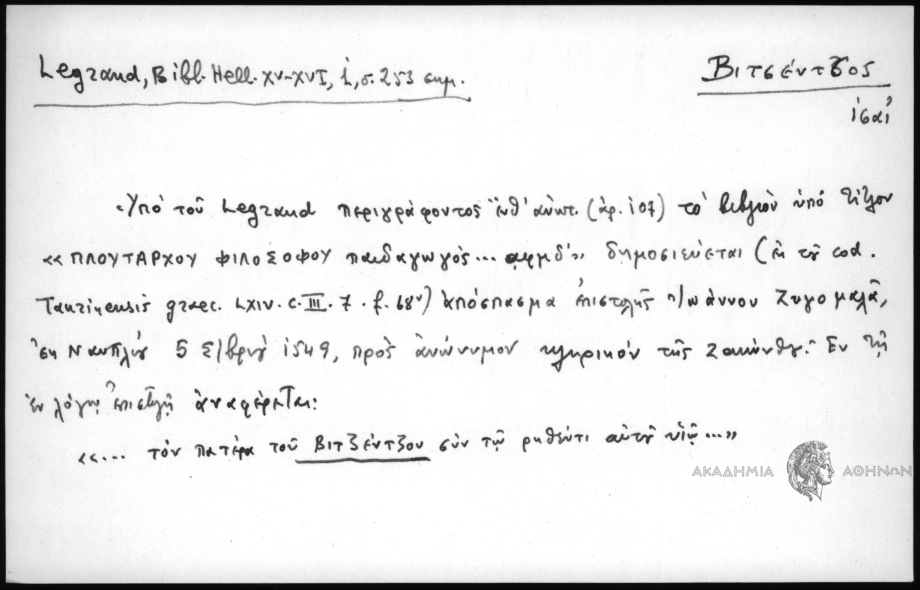 Legrand, Bibl. Hell. XV-XVI, 1, σ. 253 σημ.
Βιτσέντζος
Ὑπό τοῦ Legrand περιγράφοντος ἐνθ' ἀνωτ. (ἀρ. 107) τό βιβλίον ὑπό τίτλον
«ΠΛΟΥΤΑΡΧΟΥ ΦΙΛΟΣΟΦΟΥ παιδαγωγός... ͵αφμδʹ» δημοσιεύεται (ἐκ τοῦ cod.
Taurinensis graec. LXIV. C. III. 7. f. 68ᵛ) ἀπόσπασμα ἐπιστολῆς Ἰωάννου Ζυγομαλᾶ,
ἐκ Ναυπλίου 5 Σ/βρίου 1549, πρός ἀνώνυμον κληρικόν τῆς Ζακύνθου. Ἐν τῇ
ἐν λόγῳ ἐπιστολῇ ἀναφέρεται:
«... τόν πατέρα τοῦ ΒΙΤΖΕΝΤΖΟΥ σύν τῷ ρηθέντι αὐτοῦ υἱῷ...»
ΑΚΑΔΗΜΙΑ ΑΘΗΝΩΝ